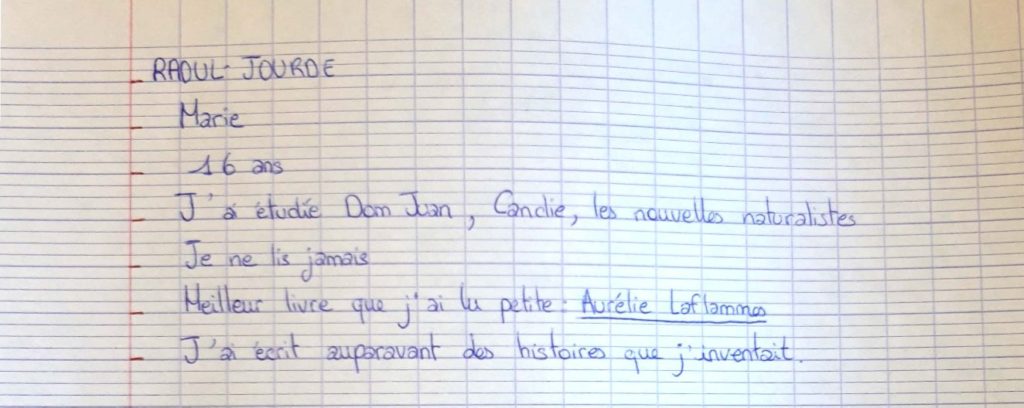 - RAOUL-JOURDE
- Marie
- 16 ans
- J'ai étudié Dom Juan, Candie, les nouvelles naturalistes
- Je ne lis jamais
- Meilleur livre que j'ai lu petite : Aurélie Laflammes
- J'ai écrit auparavant des histoires que j'inventait.